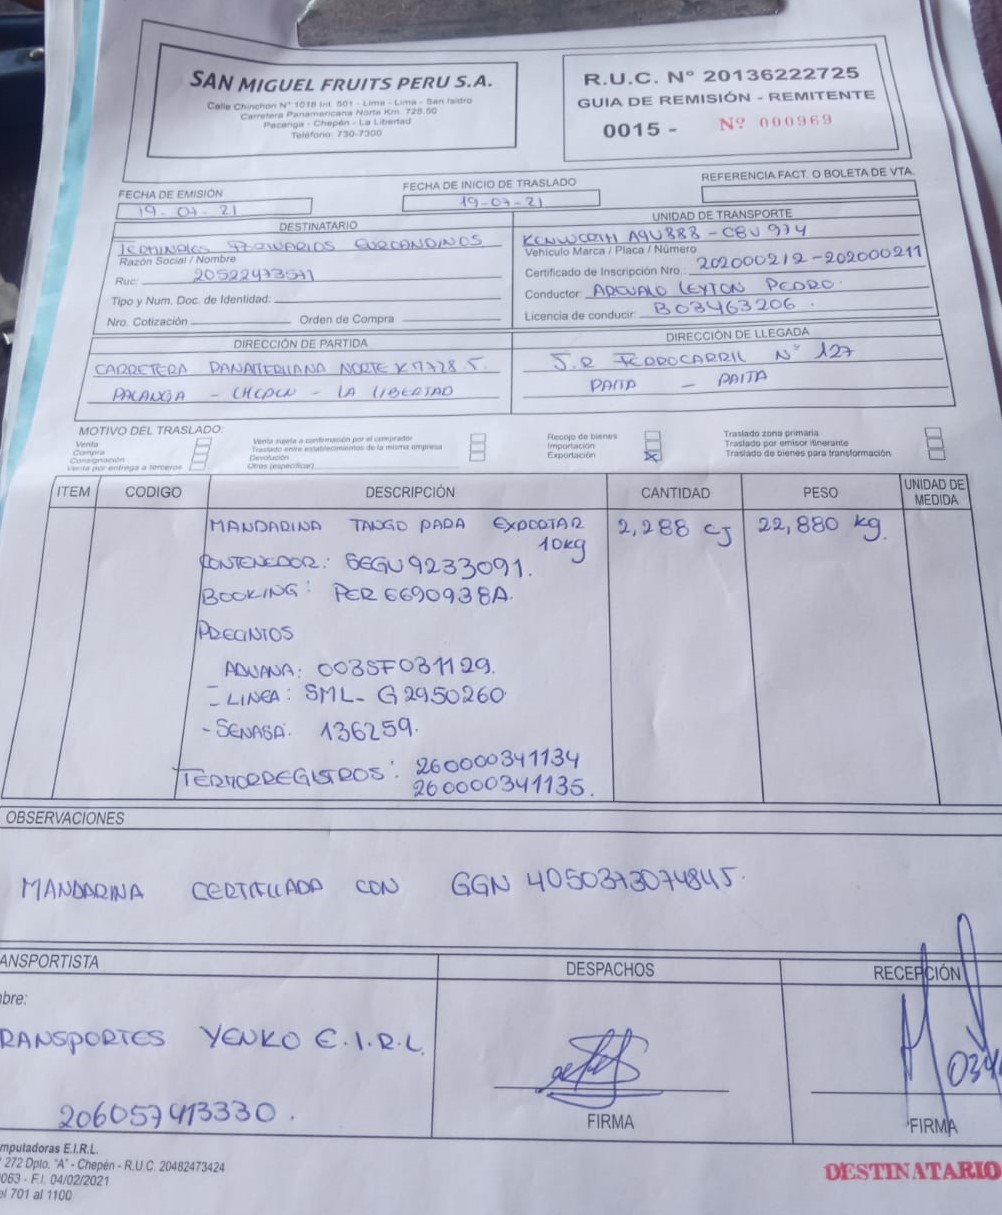 SAN MIGUEL FRUITS PERU S.A.
Calle Chinchon N° 1018 Int. 501 - Lima - Lima - San Isidro
Carretera Panamericana Norte Km. 728.50
Pacanga - Chepén - La Libertad
Teléfono: 730-7300
R.U.C. N° 20136222725
GUIA DE REMISIÓN - REMITENTE
0015 - Nº 000969
FECHA DE EMISIÓN
19-07-21
FECHA DE INICIO DE TRASLADO
19-07-21
REFERENCIA FACT. O BOLETA DE VTA.
DESTINATARIO
TERMINALES PORTUARIOS EUROANDINOS
Razón Social / Nombre
Ruc: 20522473571
Tipo y Num. Doc. de Identidad:
Nro. Cotización Orden de Compra
UNIDAD DE TRANSPORTE
KENWORTH A9U888 - C8U974
Vehículo Marca / Placa / Número
Certificado de Inscripción Nro. 202000212-202000211
Conductor: AREVALO LEYTON PEDRO.
Licencia de conducir: B03463206.
DIRECCIÓN DE PARTIDA
CARRETERA PANAMERICANA NORTE KM728.5
PACANGA - CHEPEN - LA LIBERTAD
DIRECCIÓN DE LLEGADA
J.R FERROCARRIL N° 127
PAITA - PAITA
MOTIVO DEL TRASLADO:
Venta
Compra
Consignación
Venta por entrega a terceros
Venta sujeta a confirmación por el comprador
Traslado entre establecimientos de la misma empresa
Devolución
Otros (especificar)
Recojo de bienes
Importación
Exportación X
Traslado zona primaria
Traslado por emisor itinerante
Traslado de bienes para transformación
ITEM CODIGO DESCRIPCIÓN CANTIDAD PESO UNIDAD DE MEDIDA
MANDARINA TANGO PARA EXPORTAR 2,288 CJ 22,880 kg.
10kg
CONTENEDOR: SEGU9233091.
BOOKING: PER6690938A.
PRECINTOS
ADUANA: 003SF031129.
- LINEA: SML-G2950260
- SENASA: 136259.
TERMORREGISTROS: 260000341134
260000341135.
OBSERVACIONES
MANDARINA CERTIFICADA CON GGN 4050373074845.
ANSPORTISTA
DESPACHOS
RECEPCIÓN
bre:
RANSPORTES YENKO E.I.R.L.
206057413330.
FIRMA
FIRMA
mputadoras E.I.R.L.
272 Dpto. "A" - Chepén - R.U.C. 20482473424
063 - F.I. 04/02/2021
el 701 al 1100
DESTINATARIO